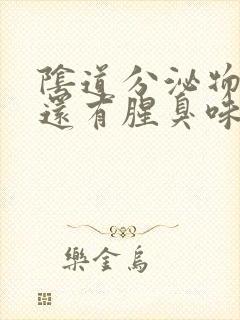 陰道分泌物
還有腥臭味
樂金烏